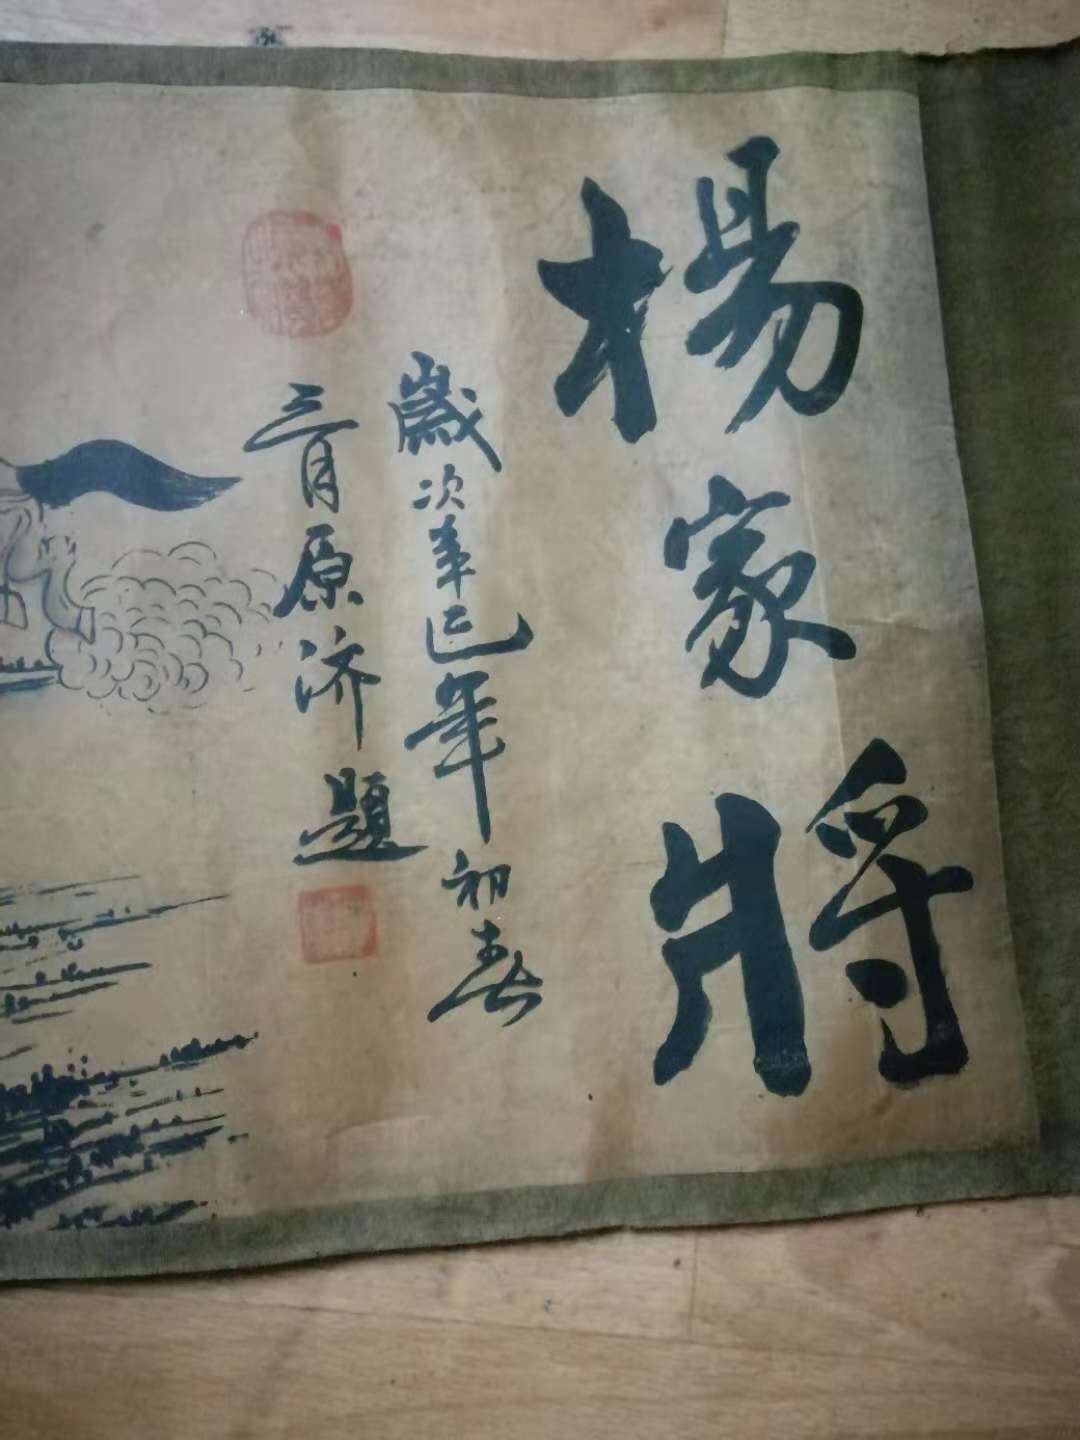 楊家將
歲次辛巳年初春
三月原济題